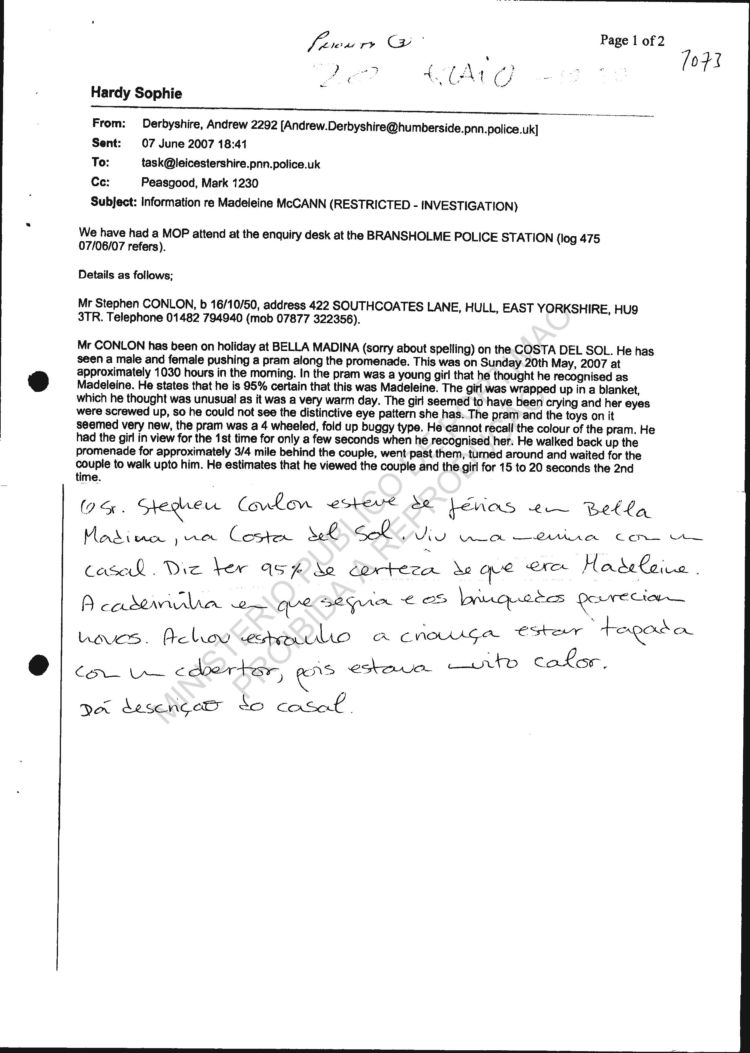 PRIORITY 3
Page 1 of 2
7073
20 MAIO
Hardy Sophie
From: Derbyshire, Andrew 2292 [Andrew.Derbyshire@humberside.pnn.police.uk]
Sent: 07 June 2007 18:41
To: task@leicestershire.pnn.police.uk
Cc: Peasgood, Mark 1230
Subject: Information re Madeleine McCANN (RESTRICTED - INVESTIGATION)
We have had a MOP attend at the enquiry desk at the BRANSHOLME POLICE STATION (log 475
07/06/07 refers).
Details as follows;
Mr Stephen CONLON, b 16/10/50, address 422 SOUTHCOATES LANE, HULL, EAST YORKSHIRE, HU9
3TR. Telephone 01482 794940 (mob 07877 322356).
Mr CONLON has been on holiday at BELLA MADINA (sorry about spelling) on the COSTA DEL SOL. He has
seen a male and female pushing a pram along the promenade. This was on Sunday 20th May, 2007 at
approximately 1030 hours in the morning. In the pram was a young girl that he thought he recognised as
Madeleine. He states that he is 95% certain that this was Madeleine. The girl was wrapped up in a blanket,
which he thought was unusual as it was a very warm day. The girl seemed to have been crying and her eyes
were screwed up, so he could not see the distinctive eye pattern she has. The pram and the toys on it
seemed very new, the pram was a 4 wheeled, fold up buggy type. He cannot recall the colour of the pram. He
had the girl in view for the 1st time for only a few seconds when he recognised her. He walked back up the
promenade for approximately 3/4 mile behind the couple, went past them, turned around and waited for the
couple to walk upto him. He estimates that he viewed the couple and the girl for 15 to 20 seconds the 2nd
time.
O Sr. Stephen Conlon esteve de férias em Bella
Madina, na Costa del Sol. Viu uma menina com um
casal. Diz ter 95% de certeza de que era Madeleine.
A cadeirinha em que seguia e os brinquedos pareciam
novos. Achou estranho a criança estar tapada
com um cobertor, pois estava muito calor.
Dá descrição do casal.
MINISTERIO PUBLICO PORTIMAO
PROIBIDA A REPRODUCAO